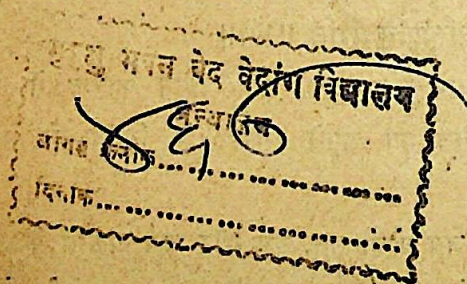 मुमुक्षु भवन वेद वेदांग विद्यालय
ग्रन्थालय
आगत क्रमांक........................
दिनांक..............................